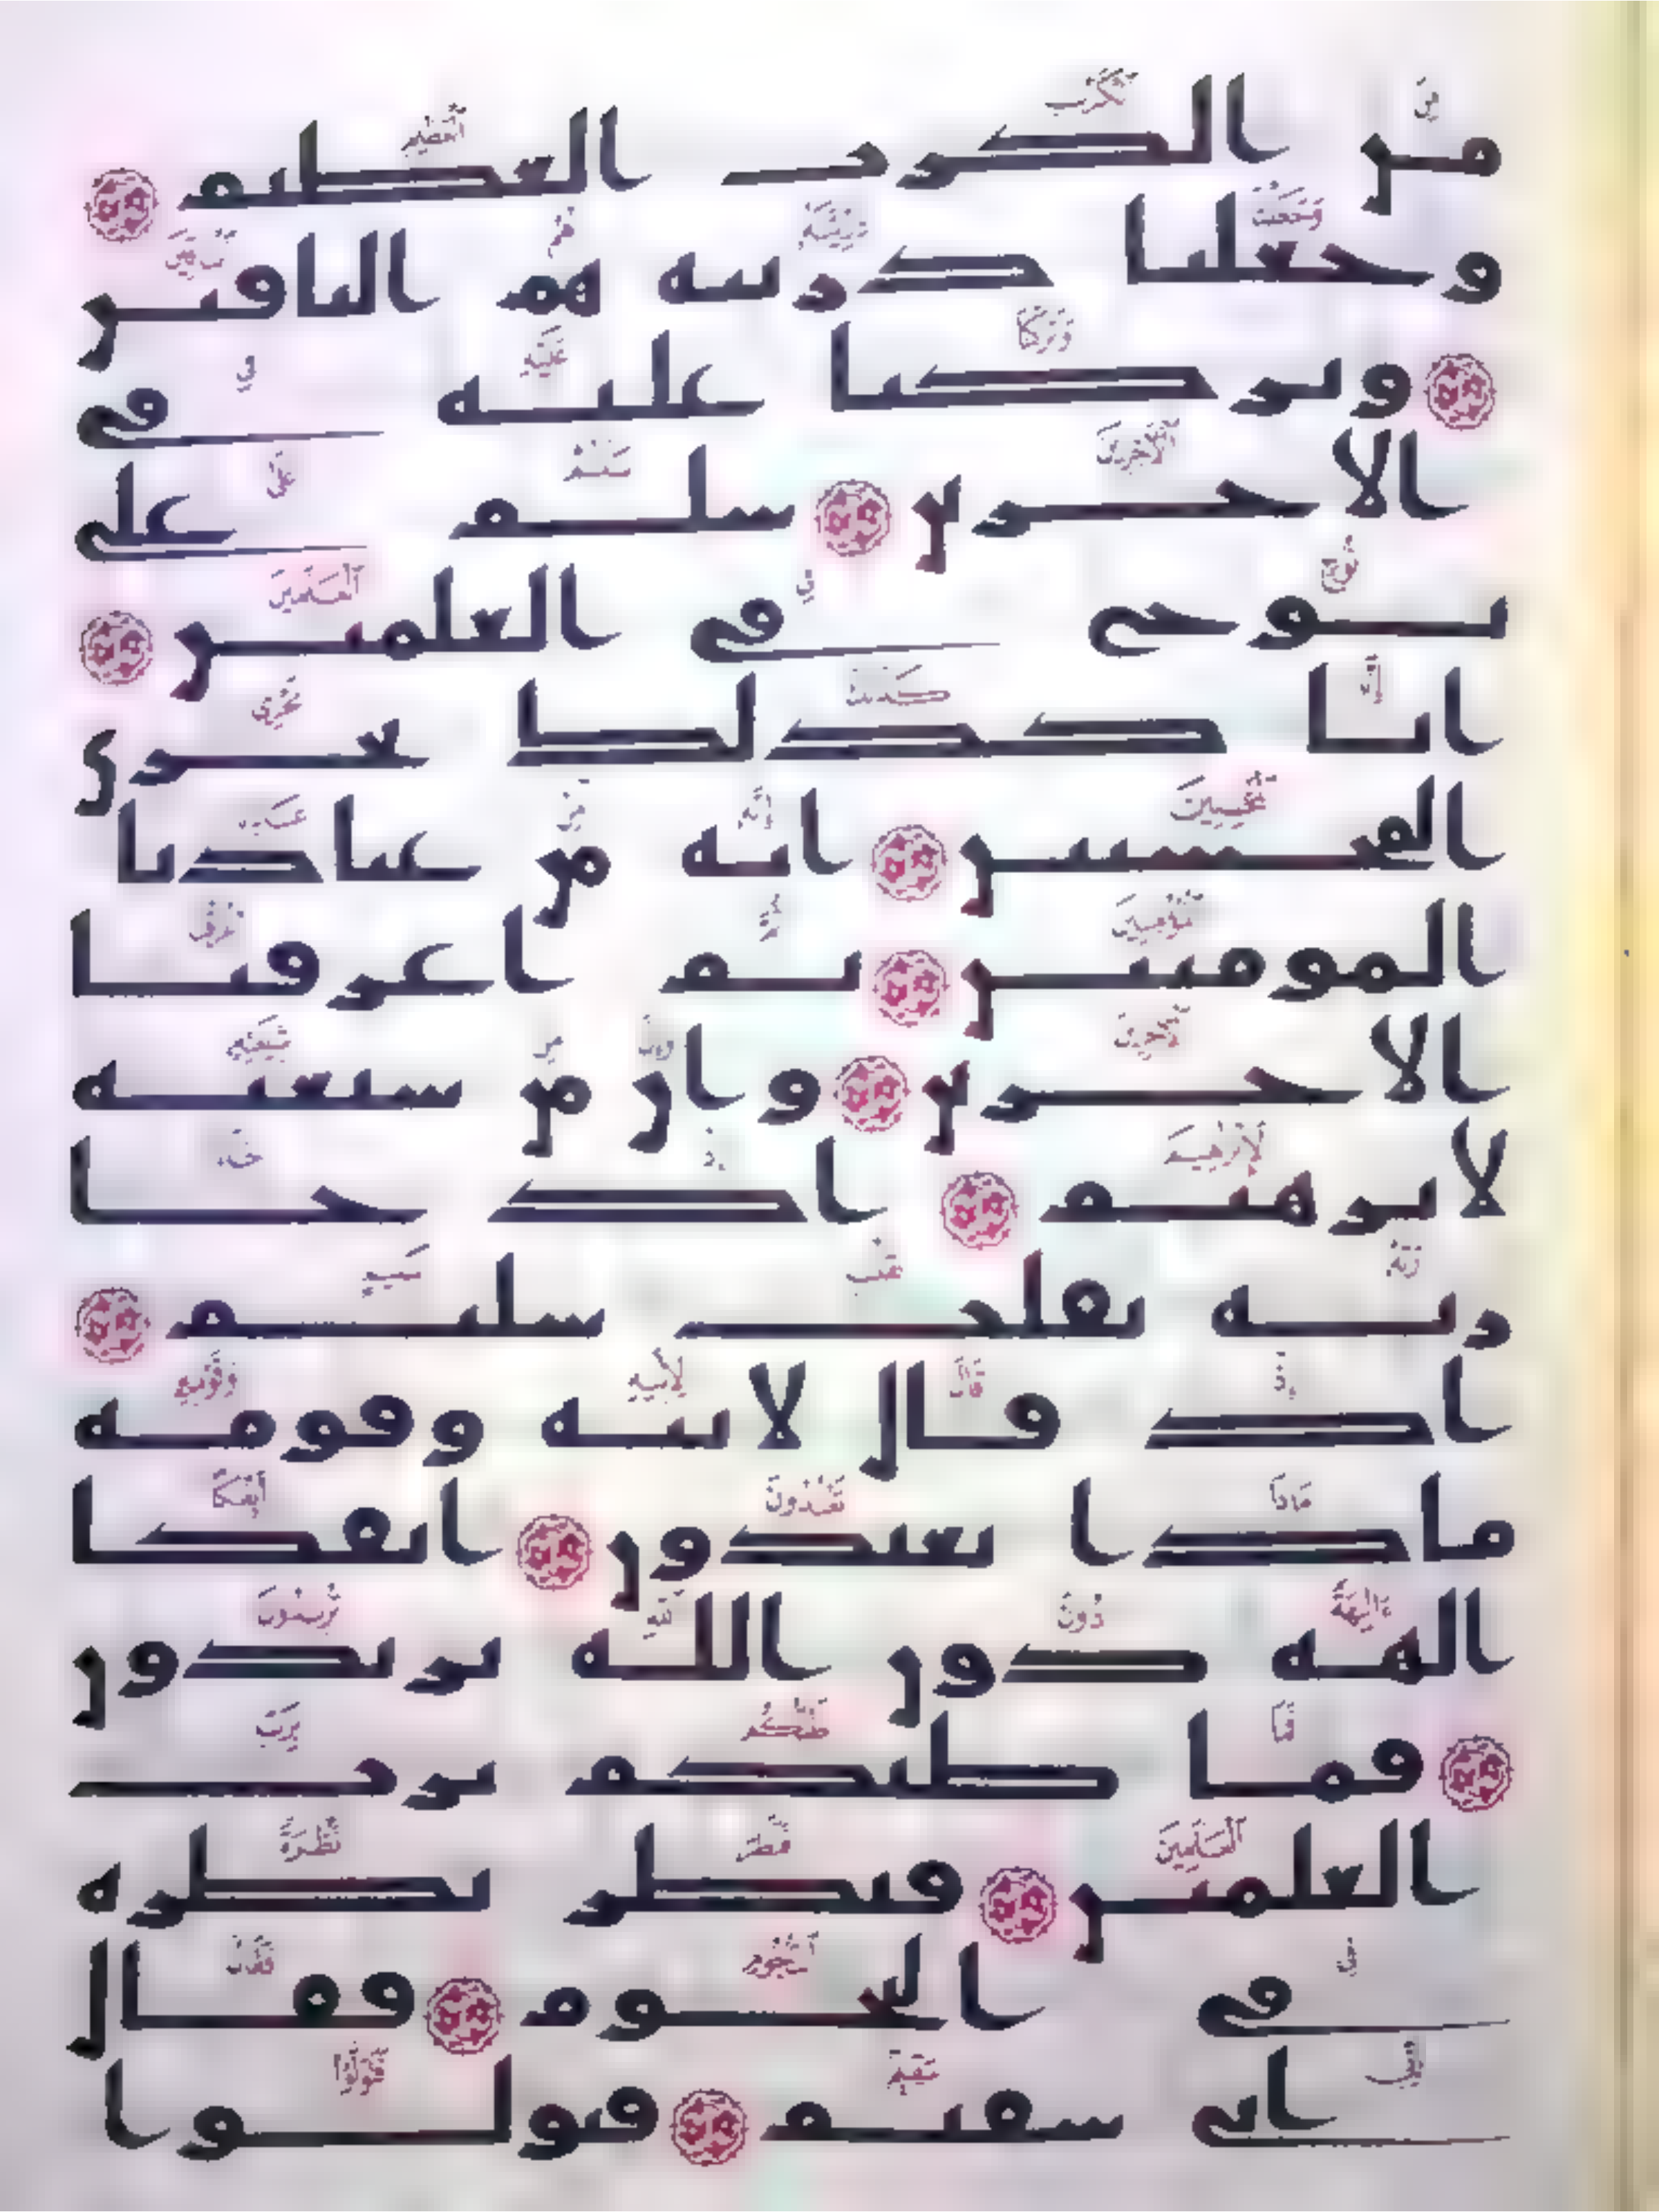 من الكرب العظيم
وجعلنا ذريته هم الباقين
وتركنا عليه في
الاخرين سلم على
نوح في العلمين
انا كذلك نجزي
المحسنين انه من عبادنا
المومنين ثم اغرقنا
الاخرين وان من شيعته
لابرهيم اذ جا
ربه بقلب سليم
اذ قال لابيه وقومه
ماذا تعبدون ايفكا
الهه دون الله تريدون
فما ظنكم برب
العلمين فنظر نظره
في النجوم فقال
اني سقيم فتولوا